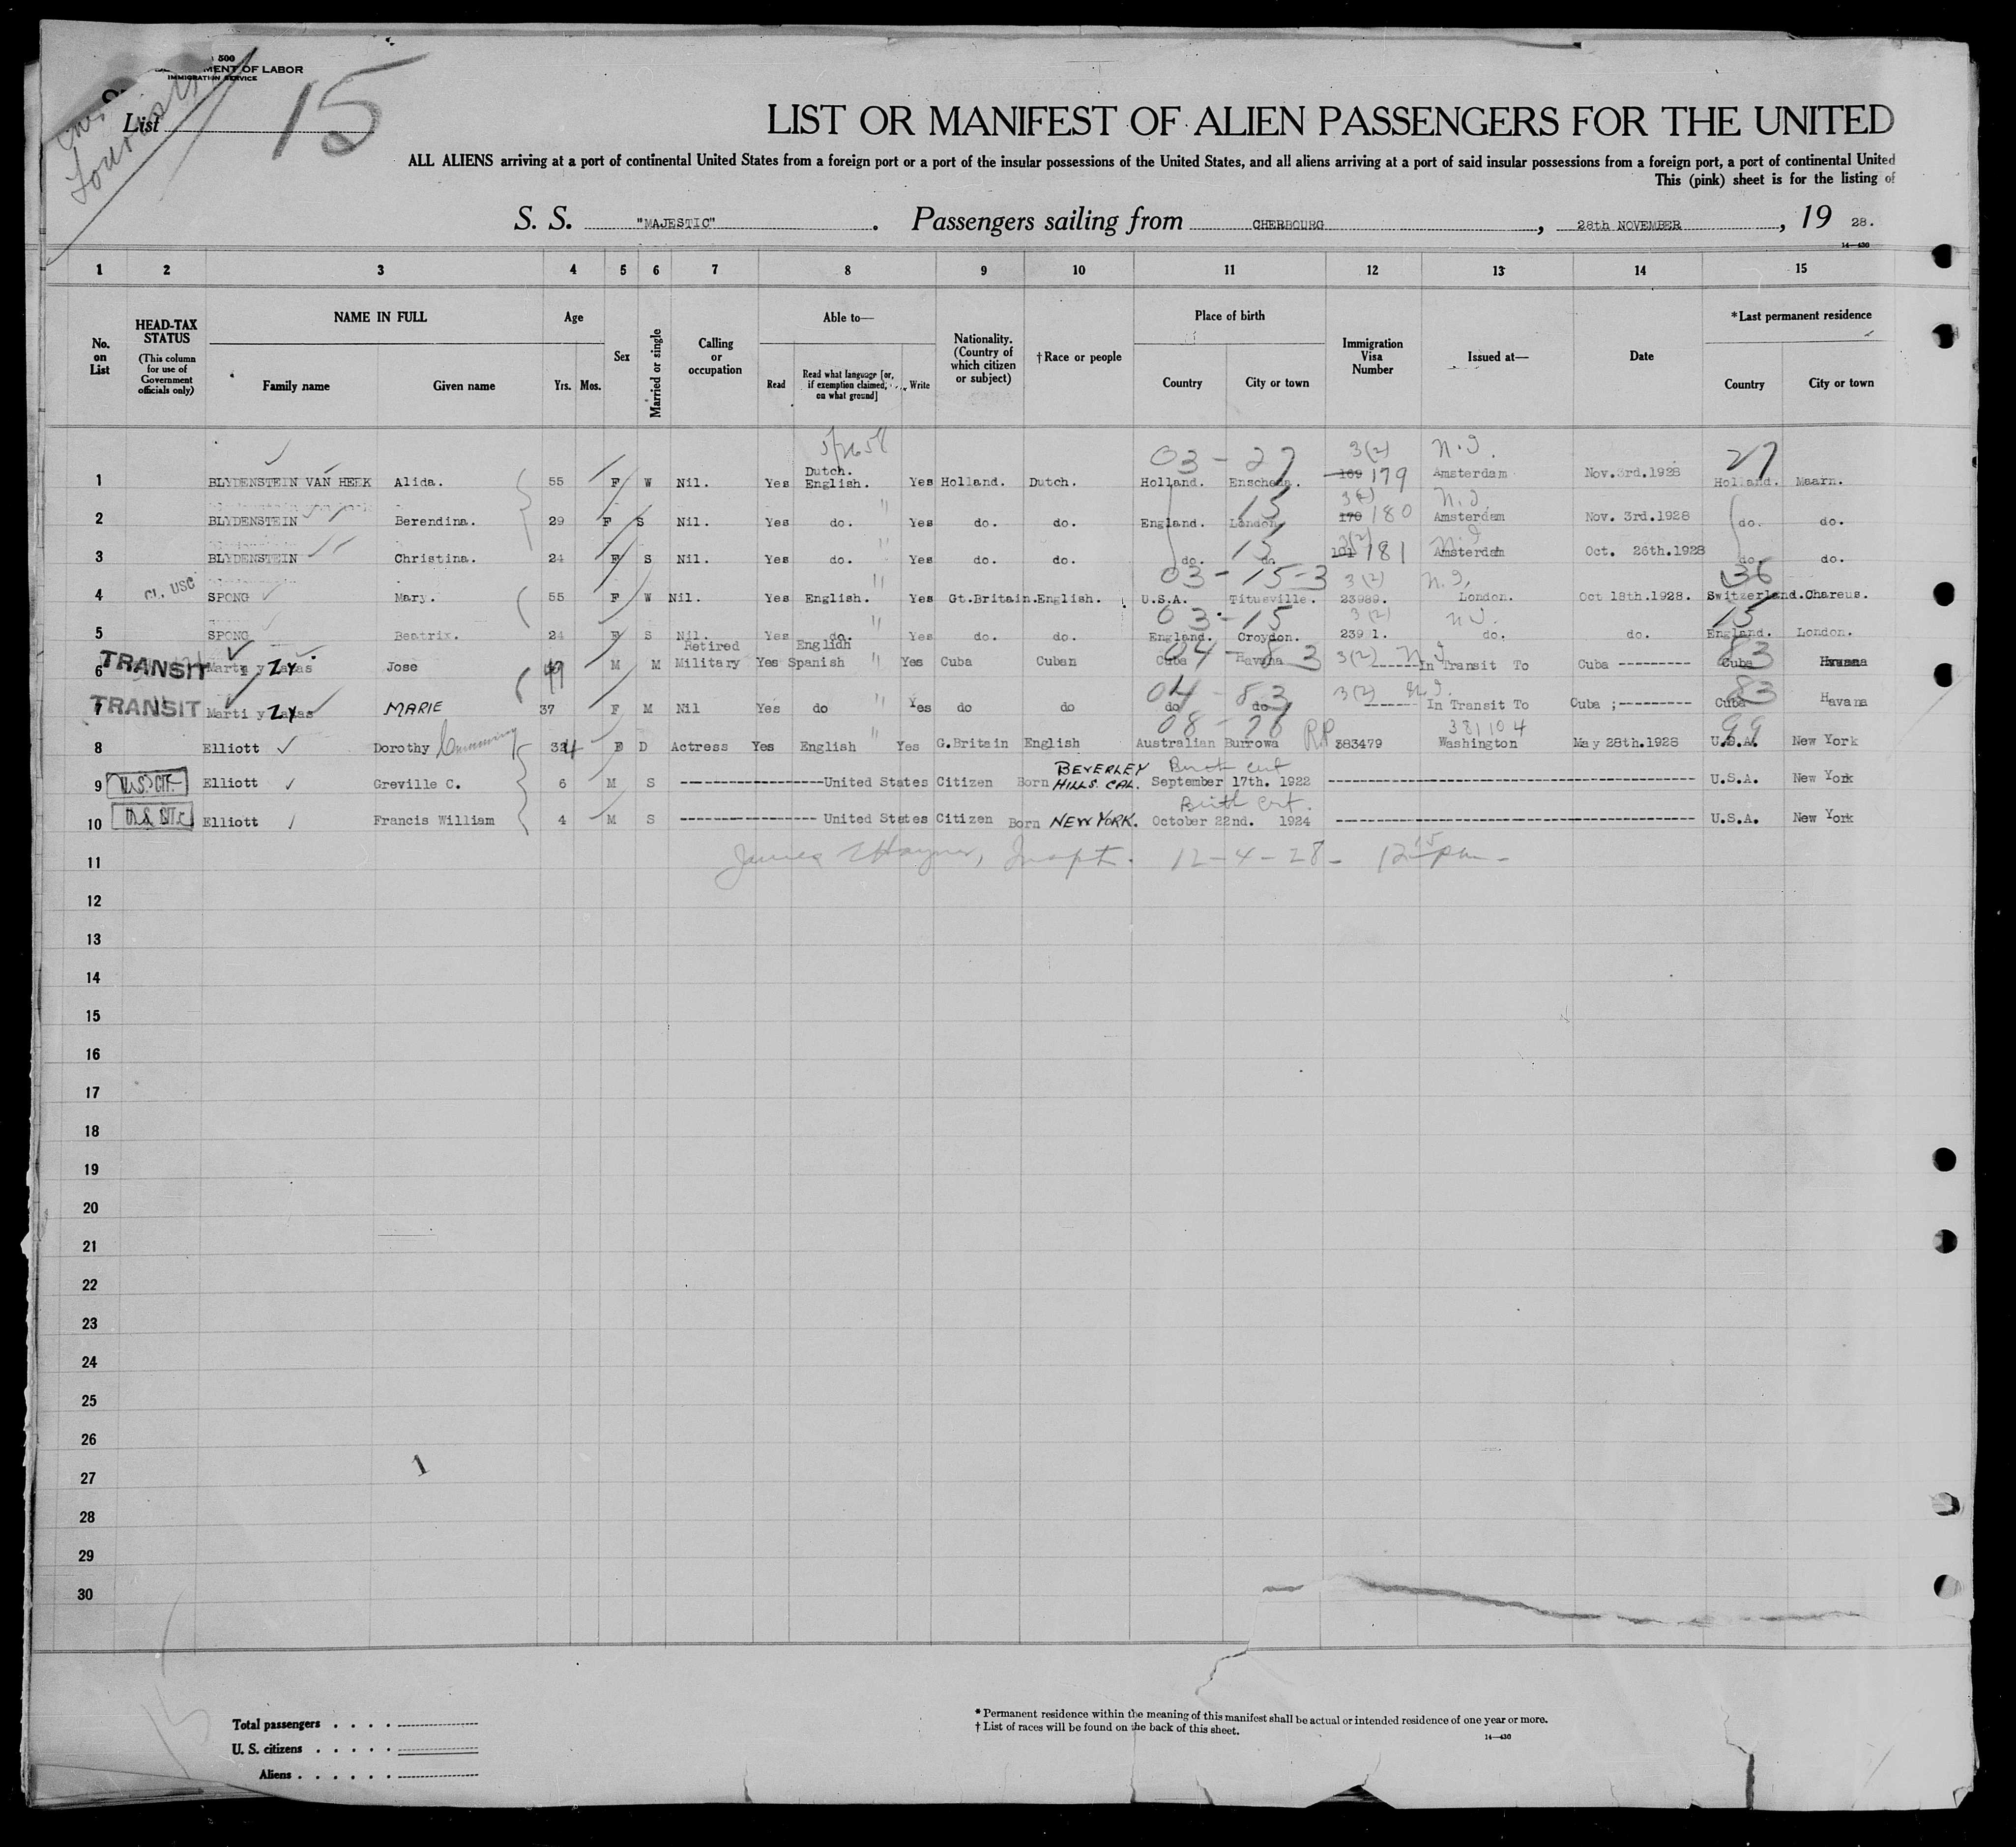 500
MENT OF LABOR
IMMIGRATION SERVICE
List 15
LIST OR MANIFEST OF ALIEN PASSENGERS FOR THE UNITED
ALL ALIENS arriving at a port of continental United States from a foreign port or a port of the insular possessions of the United States, and all aliens arriving at a port of said insular possessions from a foreign port, a port of continental United
This (pink) sheet is for the listing of
S. S. "MAJESTIC". Passengers sailing from CHERBOURG, 28th NOVEMBER, 19 28.
14—430
1 2 3 4 5 6 7 8 9 10 11 12 13 14 15
No. on List
HEAD-TAX STATUS (This column for use of Government officials only)
NAME IN FULL
Family name Given name
Age
Yrs. Mos.
Sex
Married or single
Calling or occupation
Able to—
Read
Read what language [or, if exemption claimed, on what ground]
Write
Nationality. (Country of which citizen or subject)
†Race or people
Place of birth
Country City or town
Immigration Visa Number
Issued at—
Date
*Last permanent residence
Country City or town
03-27 3(2) N.I. 27
1 BLYDENSTEIN VAN HEEK Alida. 55 F W Nil. Yes Dutch. English. Yes Holland. Dutch. Holland. Enscheda. 169 179 Amsterdam Nov.3rd.1928 Holland. Maarn.
15 3(2) N.I.
2 BLYDENSTEIN Berendina. 29 F S Nil. Yes do. " Yes do. do. England. London 170 180 Amsterdam Nov. 3rd.1928 do. do.
15 3(2) N.I.
3 BLYDENSTEIN Christina. 24 F S Nil. Yes do. " Yes do. do. do. do. 101 181 Amsterdam Oct. 26th.1928 do. do.
CL. USC 03-15-3 3(2) N.I. 36
4 SPONG Mary. 55 F W Nil. Yes English. " Yes Gt.Britain. English. U.S.A. Titusville. 23989. London. Oct 18th.1928. Switzerland. Chareus.
03-15 3(2) N.I. 15
5 SPONG Beatrix. 24 F S Nil. Yes do. " Yes do. do. England. Croydon. 239 1. do. do. England. London.
04-83 3(2) N.I. 83
TRANSIT
6 Marti y ZY Jose 49 M M Retired Military Yes English Spanish " Yes Cuba Cuban Cuba Havana ------In Transit To Cuba --------- Cuba Havana
04-83 3(2) N.I. 83
TRANSIT
7 Marti y ZY MARIE 37 F M Nil Yes do " Yes do do do do ------- In Transit To Cuba ;--------- Cuba Havana
08-26 381104 99
8 Elliott Dorothy Cumming 34 F D Actress Yes English " Yes G.Britain English Australian Burrowa RP 383479 Washington May 28th.1928 U.S.A. New York
Birth cert
9 U.S. CIT. Elliott Greville C. 6 M S ----------------United States Citizen Born BEVERLEY HILLS. CAL. September 17th. 1922 ---------- U.S.A. New York
Birth Cert.
10 U.S. CIT. Elliott Francis William 4 M S --------------- United States Citizen Born NEW YORK. October 22nd. 1924 ---------- U.S.A. New York
11 James Hayner, Inspt. 12-4-28- 12 15 pm-
12
13
14
15
16
17
18
19
20
21
22
23
24
25
26
27
28
29
30
1
15
Total passengers . . . .
U. S. citizens . . . . .
Aliens . . . . . .
* Permanent residence within the meaning of this manifest shall be actual or intended residence of one year or more.
† List of races will be found on the back of this sheet.
14—430